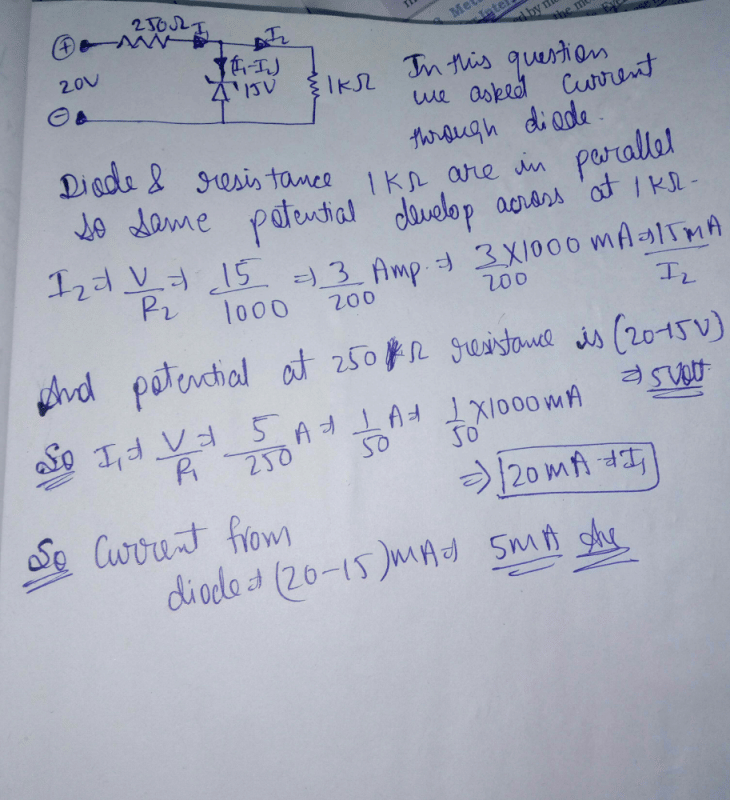 250Ω I
I₂
(I₁-I₂)
20V
15V
1KΩ
In this question
we asked Current
through diode.
Diode & resistance 1KΩ are in parallel
So Same potential develop across at 1KΩ.
I₂ ⇒ V/R₂ ⇒ 15/1000 ⇒ 3/200 Amp. ⇒ 3X1000/200 mA ⇒ 15mA
I₂
And potential at 250 Ω resistance is (20-15V)
⇒ 5Volt
So I₁ ⇒ V/R₁ ⇒ 5/250 A ⇒ 1/50 A ⇒ 1/50 X1000mA
⇒ 20mA ⇒ I₁
So Current from
diode ⇒ (20-15)mA ⇒ 5mA Ans